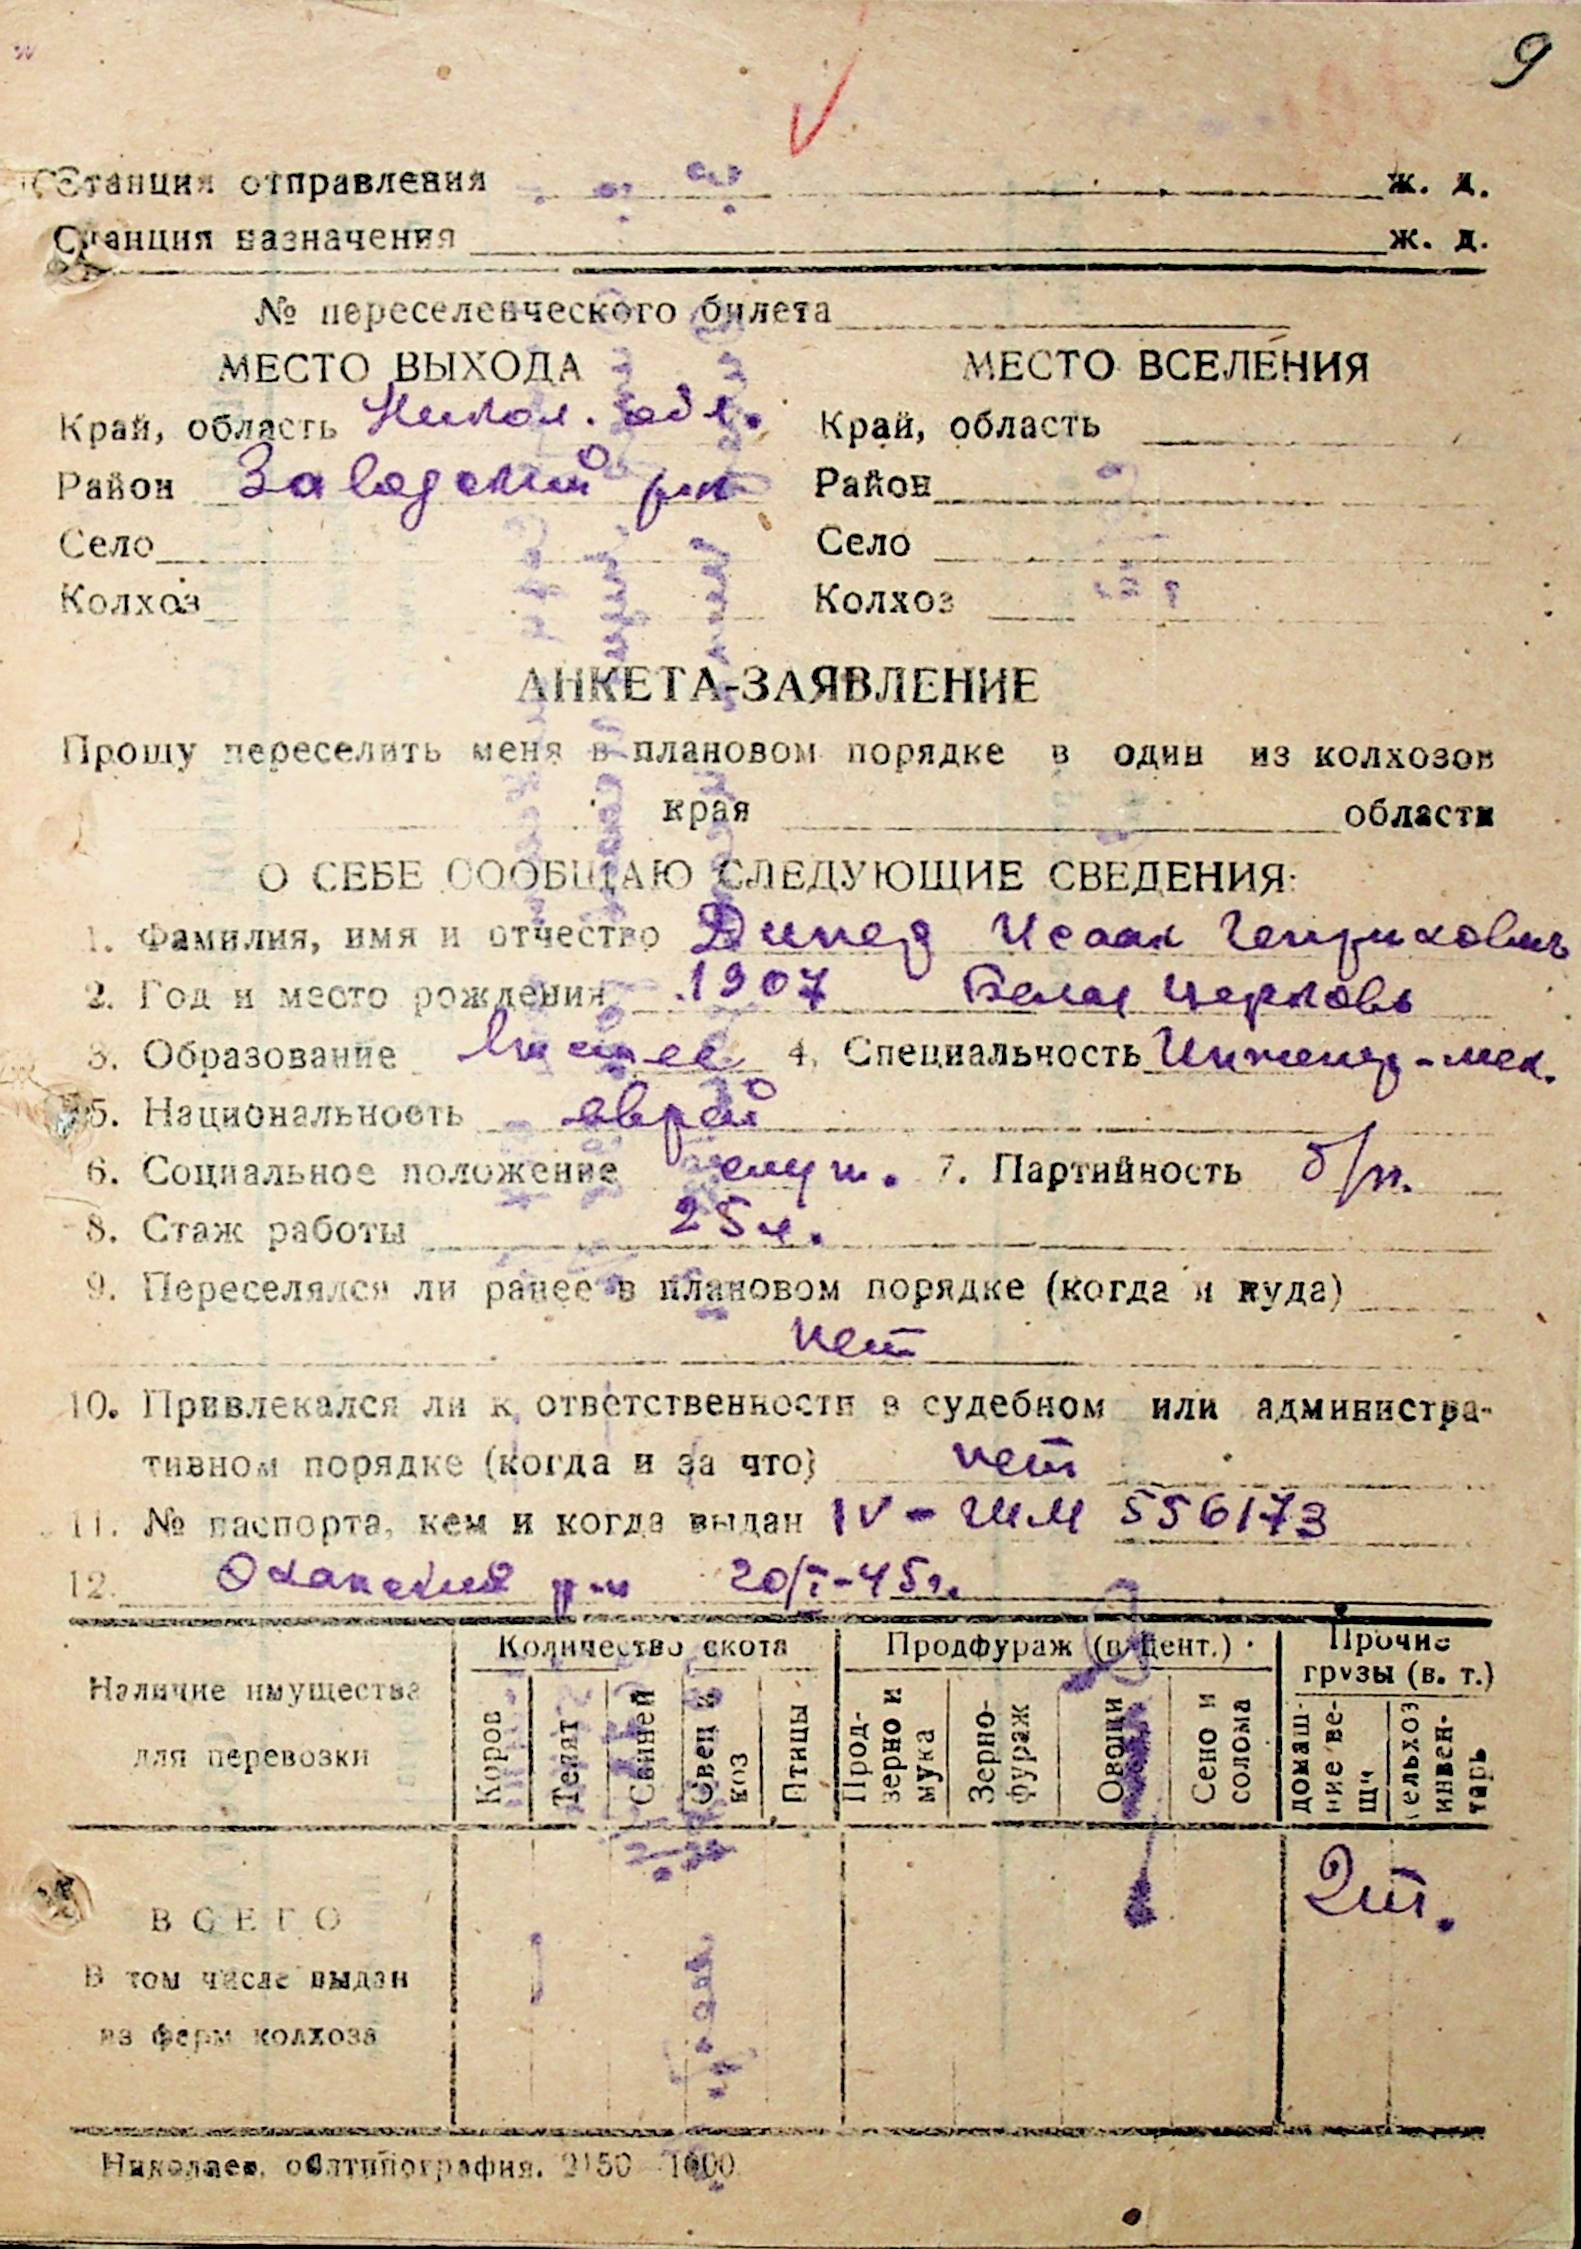 9
Станция отправления ж. д.
Станция назначения ж. д.
№ переселенческого билета
МЕСТО ВЫХОДА
Край, область Никол. обл.
Район Заводский р-н
Село
Колхоз
МЕСТО ВСЕЛЕНИЯ
Край, область
Район
Село
Колхоз
АНКЕТА-ЗАЯВЛЕНИЕ
Прошу переселить меня в плановом порядке в один из колхозов
края области
О СЕБЕ СООБЩАЮ СЛЕДУЮЩИЕ СВЕДЕНИЯ:
1. Фамилия, имя и отчество Исаак Генрихович
2. Год и место рождения 1907 Белая Церковь
3. Образование высшее 4. Специальность Инженер-мех.
5. Национальность еврей
6. Социальное положение служ. 7. Партийность б/п.
8. Стаж работы 25 л.
9. Переселялся ли ранее в плановом порядке (когда и куда)
нет
10. Привлекался ли к ответственности в судебном или администра-
тивном порядке (когда и за что) нет
11. № паспорта, кем и когда выдан IV - ШМ 556173
12. Оханский р-н 20/I-45г.
Наличие имущества
для перевозки
Количество скота
Коров
Телят
Свиней
Овец и
коз
Птицы
Продфураж (в цент.)
Прод-
зерно и
мука
Зерно-
фураж
Овощи
Сено и
солома
Прочие
грузы (в. т.)
домаш-
ние ве-
щи
сельхоз
инвен-
тарь
ВСЕГО
2т.
В том числе выдан
из ферм колхоза
Николаев, облтипография. 2150—1600